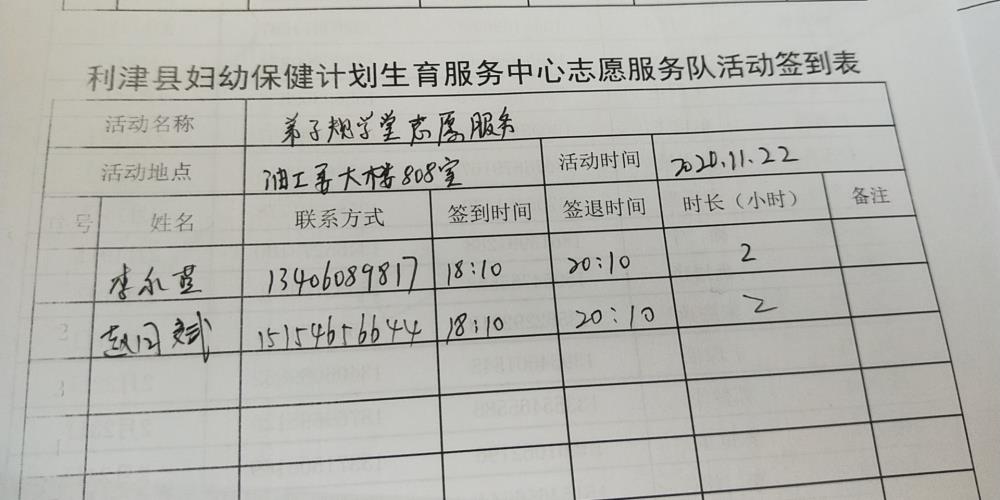 利津县妇幼保健计划生育服务中心志愿服务队活动签到表
活动名称 弟子规学堂志愿服务
活动地点 油工委大楼808室 活动时间 2020.11.22
号 姓名 联系方式 签到时间 签退时间 时长（小时） 备注
李永 13406089817 18:10 20:10 2
赵 15154656644 18:10 20:10 2
3